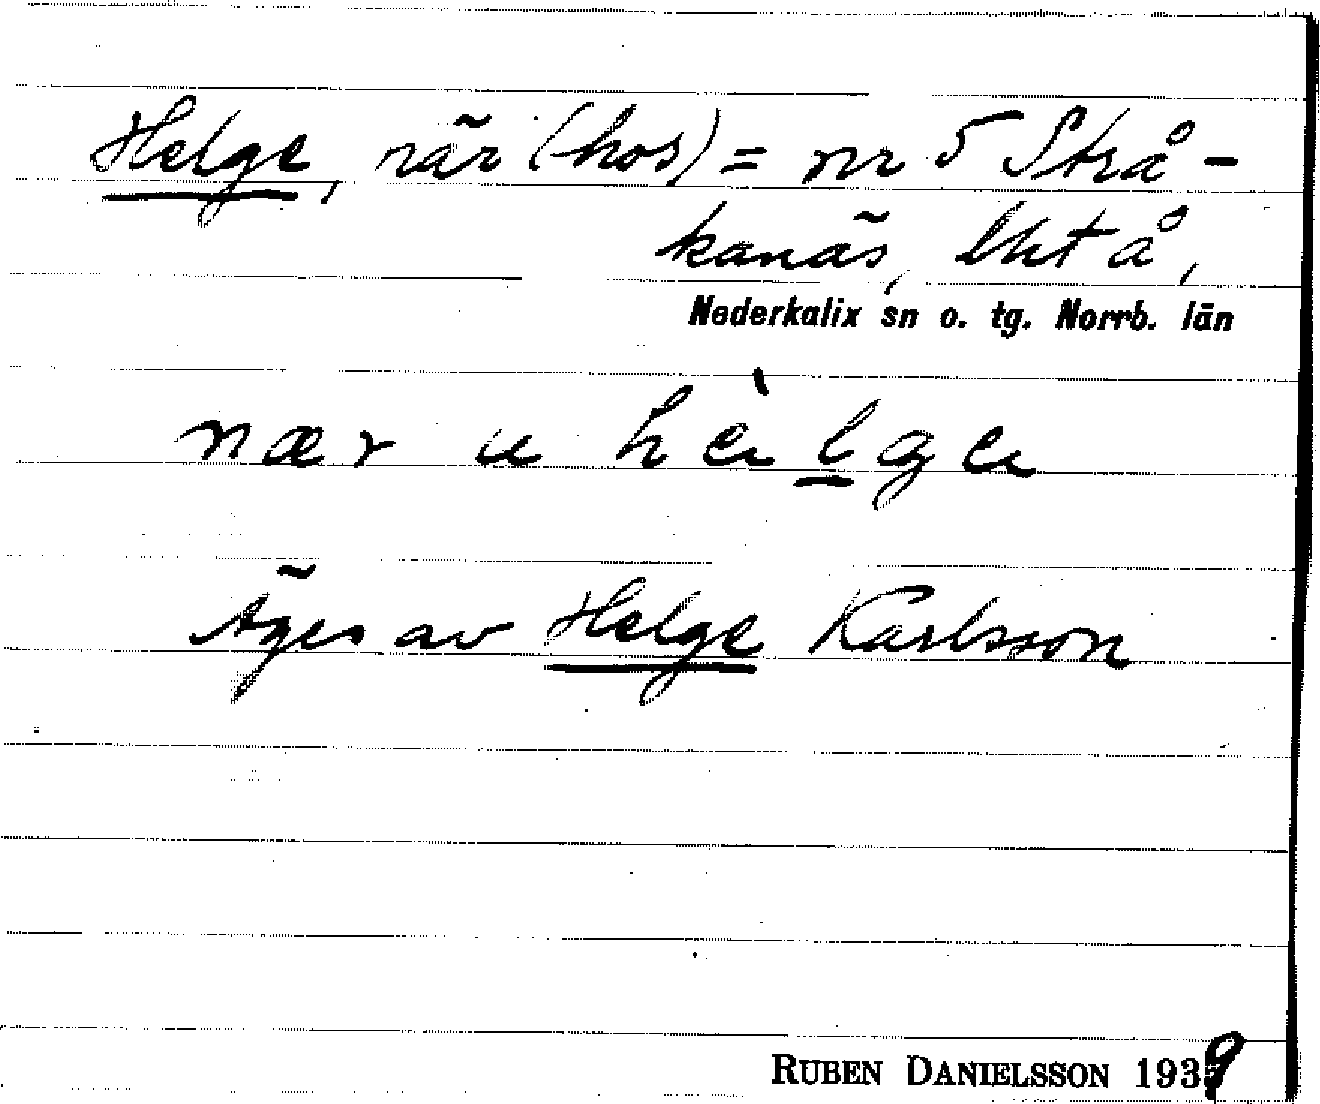 Helge, när (hos) = nr 5 Strå-
kanäs, Ytterå,
Nederkalix sn o. tg. Norrb. län
nær u hèlge
Äges av Helge Karlsson
RUBEN DANIELSSON 1939